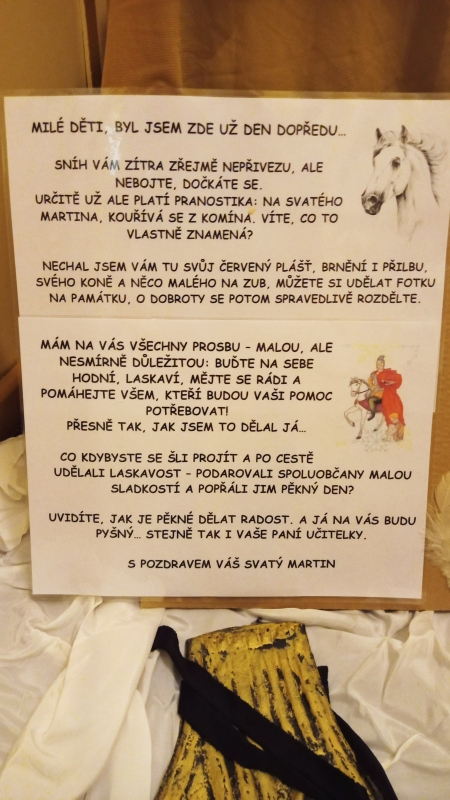 MILÉ DĚTI, BYL JSEM ZDE UŽ DEN DOPŘEDU...
SNÍH VÁM ZÍTRA ZŘEJMĚ NEPŘIVEZU, ALE
NEBOJTE, DOČKÁTE SE.
URČITĚ UŽ ALE PLATÍ PRANOSTIKA: NA SVATÉHO
MARTINA, KOUŘÍVÁ SE Z KOMÍNA. VÍTE, CO TO
VLASTNĚ ZNAMENÁ?
NECHAL JSEM VÁM TU SVŮJ ČERVENÝ PLÁŠŤ, BRNĚNÍ I PŘILBU,
SVÉHO KONĚ A NĚCO MALÉHO NA ZUB, MŮŽETE SI UDĚLAT FOTKU
NA PAMÁTKU, O DOBROTY SE POTOM SPRAVEDLIVĚ ROZDĚLTE.
MÁM NA VÁS VŠECHNY PROSBU - MALOU, ALE
NESMÍRNĚ DŮLEŽITOU: BUĎTE NA SEBE
HODNÍ, LASKAVÍ, MĚJTE SE RÁDI A
POMÁHEJTE VŠEM, KTEŘÍ BUDOU VAŠI POMOC
POTŘEBOVAT!
PŘESNĚ TAK, JAK JSEM TO DĚLAL JÁ...
CO KDYBYSTE SE ŠLI PROJÍT A PO CESTĚ
UDĚLALI LASKAVOST - PODAROVALI SPOLUOBČANY MALOU
SLADKOSTÍ A POPŘÁLI JIM PĚKNÝ DEN?
UVIDÍTE, JAK JE PĚKNÉ DĚLAT RADOST. A JÁ NA VÁS BUDU
PYŠNÝ... STEJNĚ TAK I VAŠE PANÍ UČITELKY.
S POZDRAVEM VÁŠ SVATÝ MARTIN